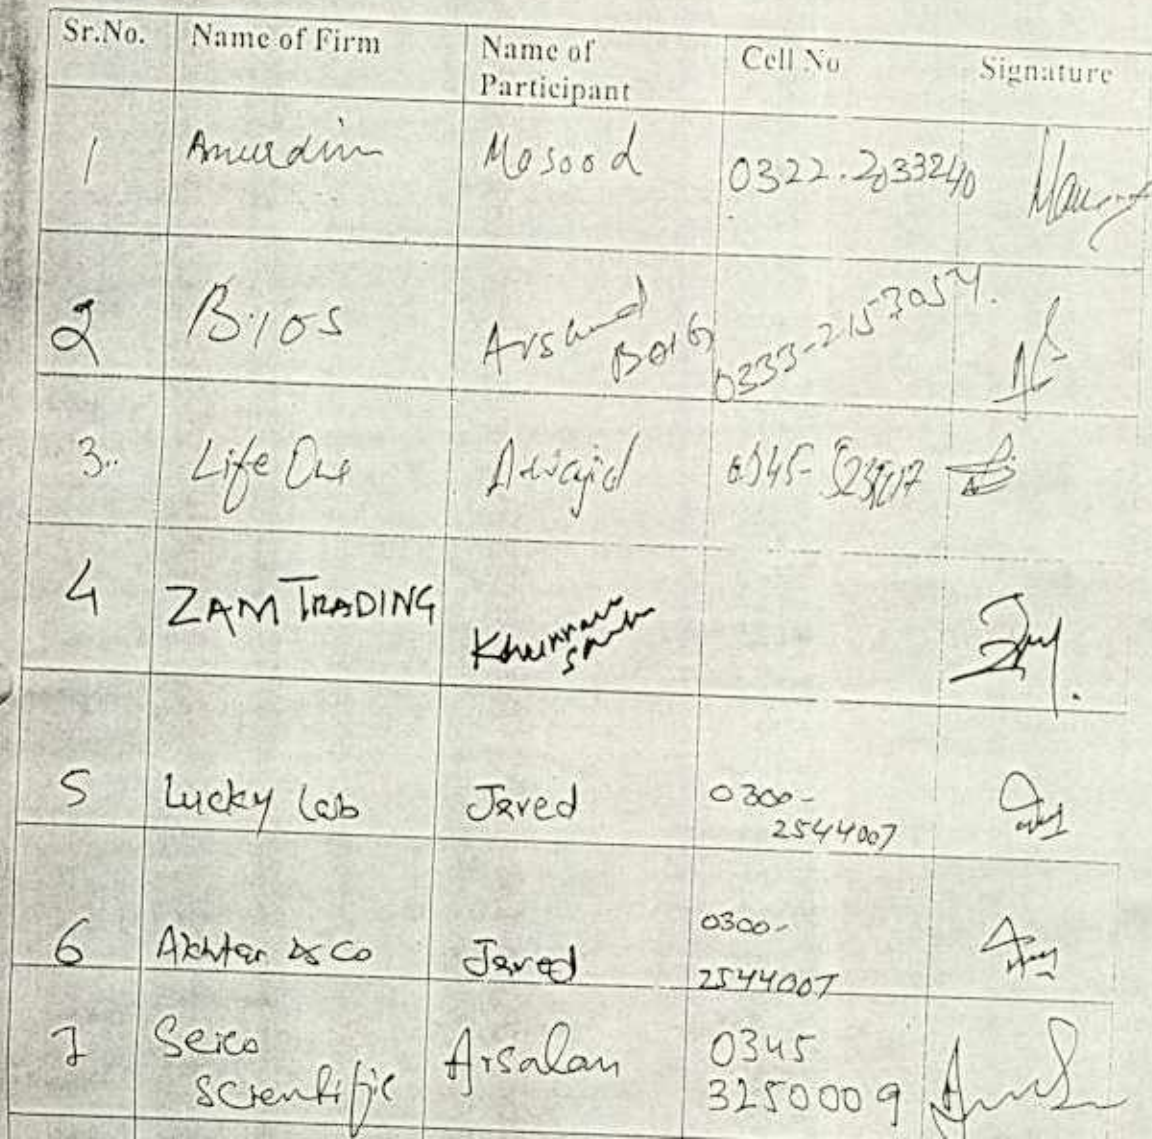 Sr.No. Name of Firm Name of Participant Cell No Signature
1 Masood 0322.2033240
2 Bios Arshad BAIG 0333-2153054.
3.. Life One
4 ZAM TRADING Khurram
5 Lucky Lab Javed 0300-2544007
6 Akhter & Co Javed 0300-2544007
7 Seico Scientific Arsalan 0345 3250009